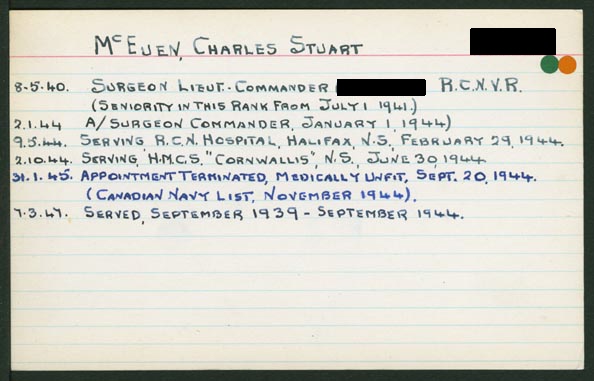 McEuen, Charles Stuart
8-5-40. Surgeon Lieut.-Commander R.C.N.V.R.
(Seniority in this rank from July 1 1941.)
2.1.44 A/Surgeon Commander, January 1, 1944)
9.5.44. Serving, R.C.N. Hospital, Halifax, N.S., February 29, 1944.
2.10.44. Serving, H.M.C.S. "Cornwallis", N.S., June 30, 1944
31.1.45. Appointment Terminated, Medically Unfit, Sept. 20, 1944.
(Canadian Navy List, November 1944).
7.3.47. Served, September 1939 - September 1944.